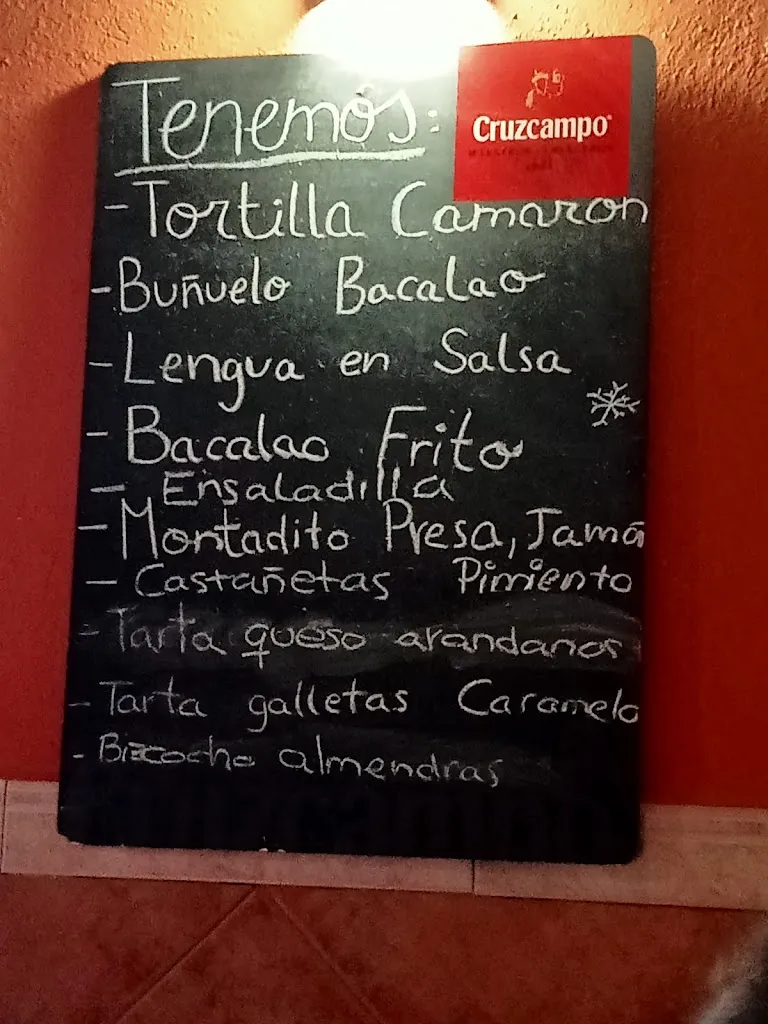 Tenemos:
Cruzcampo
- Tortilla Camaron
- Buñuelo Bacalao
- Lengua en Salsa
- Bacalao Frito
- Ensaladilla
- Montadito Presa, Jamó
- Castañetas Pimiento
- Tarta queso arandanos
- Tarta galletas Caramelo
- Bizcocho almendras